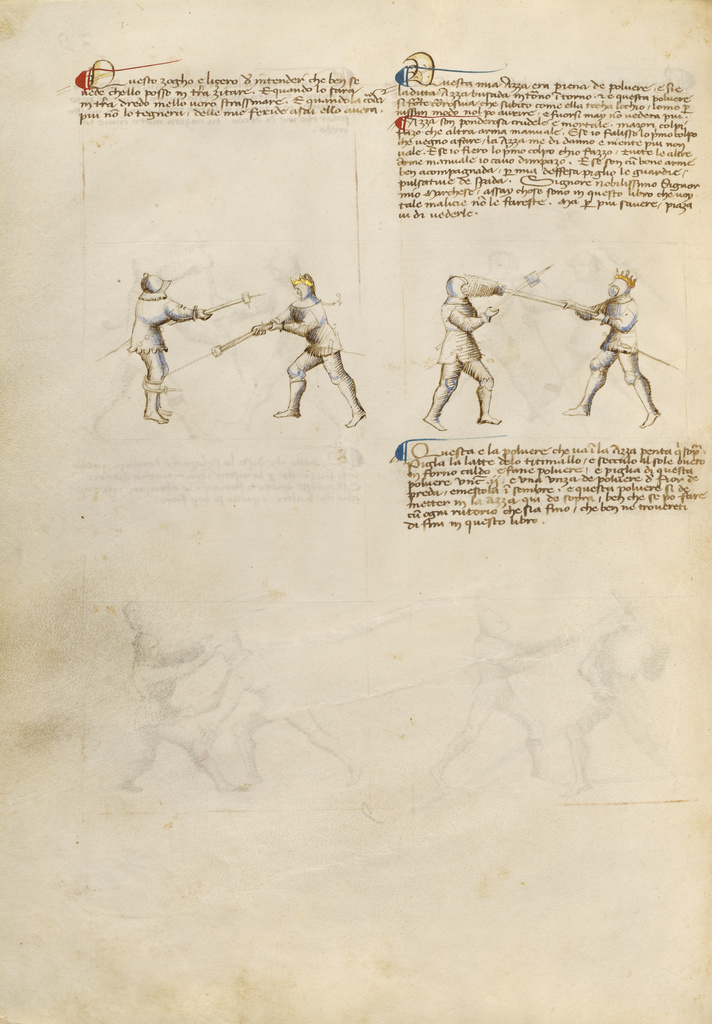 Questo zogho e ligero d'intender che ben se
vede chello posso in tra zitare. E quando lo farò
in tra dredo mello vorò strassinare. E quando la coda
più nò lo tegnerà, delle mie feride assai ello avera.
Questa mia Azza era piena de polvere, e si è
la dita Azza busada intorno intorno. E è questa polvere
sì forte corosiva che subito come ella tocha lochio, lomo per
nissun modo nol po aurire, e fuorsi may nò vederà più.
Azza son ponderosa crudele e mortale, mazori colpi
fazo che altra arma manuale. E se io falisso lo primo colpo
che vegno a fare, la Azza me de danno e niente più non
vale. E se io fiero lo primo colpo chio fazzo, tutte le altre
arme manuale io cavo d'impazo. E se son cum bone arme
ben acompagnada, per mia deffesa piglio le guardie
pulsative de spada. Signore nobilissimo Signor
mio Marchese, assay chose sono in questo libro che voy
tale malicie nò le fareste. Ma per più savere, piaza
vi di vederle.
Questa è la polvere che va in la Azza penta qui sopra.
Piglia la latte delo titimallo, e seccalo al sole overo
in forno caldo e fane polvere, e piglia di questa
polvere unc. II. e una unza de polvere d fior de
preda, e mescola insembre, e questa polvere si de
metter in la Azza qui de sopra, ben che se pò fare
cum ogni rutorio che sia fino, che ben ne trovereti
di fini in questo libro.